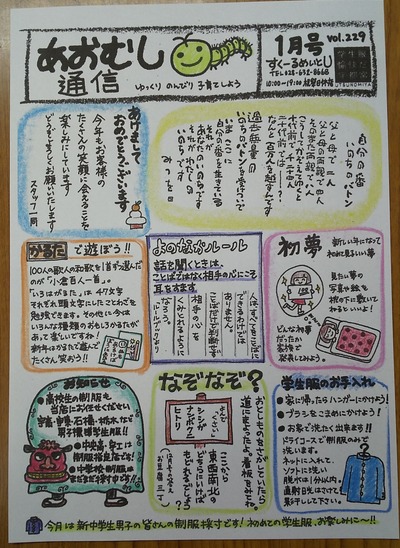 あおむし
通信
ゆっくり のんびり 子育てしよう
1月号 vol.229
すくーるめいとU
TEL 028-632-8668
10:00～19:00
UTSUNOMIYA
あけまして
おめでとうございます
今年もお客様の
たくさんの笑顔に会えることを
楽しみにしています!
どうぞよろしくお願いいたします
スタッフ一同
自分の番
いのちのバトン
父と母で二人
父と母の両親で四人
そのまた両親で八人
こうしてかぞえてゆくと
十代前で千二十四人
二十代前では?
なんと百万人を越すんです
過去無量の
いのちのバトンを受けついで
いまここに
自分の番を生きている
それが
あなたのいのちです
それがわたしの
いのちです
みつを
かるたで遊ぼう!!
100人の歌人の和歌を1首ずつ選んだ
のが「小倉百人一首」。
「いろはがるた」は47文字
それぞれ頭文字にしたことわざを
勉強できます。その他に今は
いろんな種類のおもしろかるたが
あって楽しいですね!
新年はかるたで遊んで
たくさん笑おう!!
よのなかルール
話を聞くときは、
ことばではなく相手の心にこそ
耳をすます
人はすべてをことばに
できるわけでは
ありません。
ことばだけで判断せず
相手の心を
くみとれるように
なろう。
初夢
新しい年になって
初めに見るいい夢
見たい夢の
写真や絵を
枕の下に敷いて
ねるといいよ!
どんな夢
だったか
家族で
発表してみよう。
お知らせ
●高校生の制服も
当店にお任せください。
男子標準学生服!!
制服指定店です!
●中学校制服は
まだまだ採寸です!!
なぞなぞ?
おとしものをさがしていたら
道にまよったよ。看板をみてね。
シンガ
ナンボクニ
ヒトリ
ここから
東西南北の
どちらにいけば
もどれるでしょう?
学生服のお手入れ
●家に帰ったらハンガーにかけよう!
●ブラシをこまめにかけよう!
●お家で洗たく出来ます!!
ドライコースで制服のみで
洗います。
ネットに入れて、
ソフトに洗い
脱水は1分以内。
直射日光はさけて
黒干しして下さい。
今月は新中学生男子の皆さんの制服採寸です!初めての学生服、お楽しみに～!!